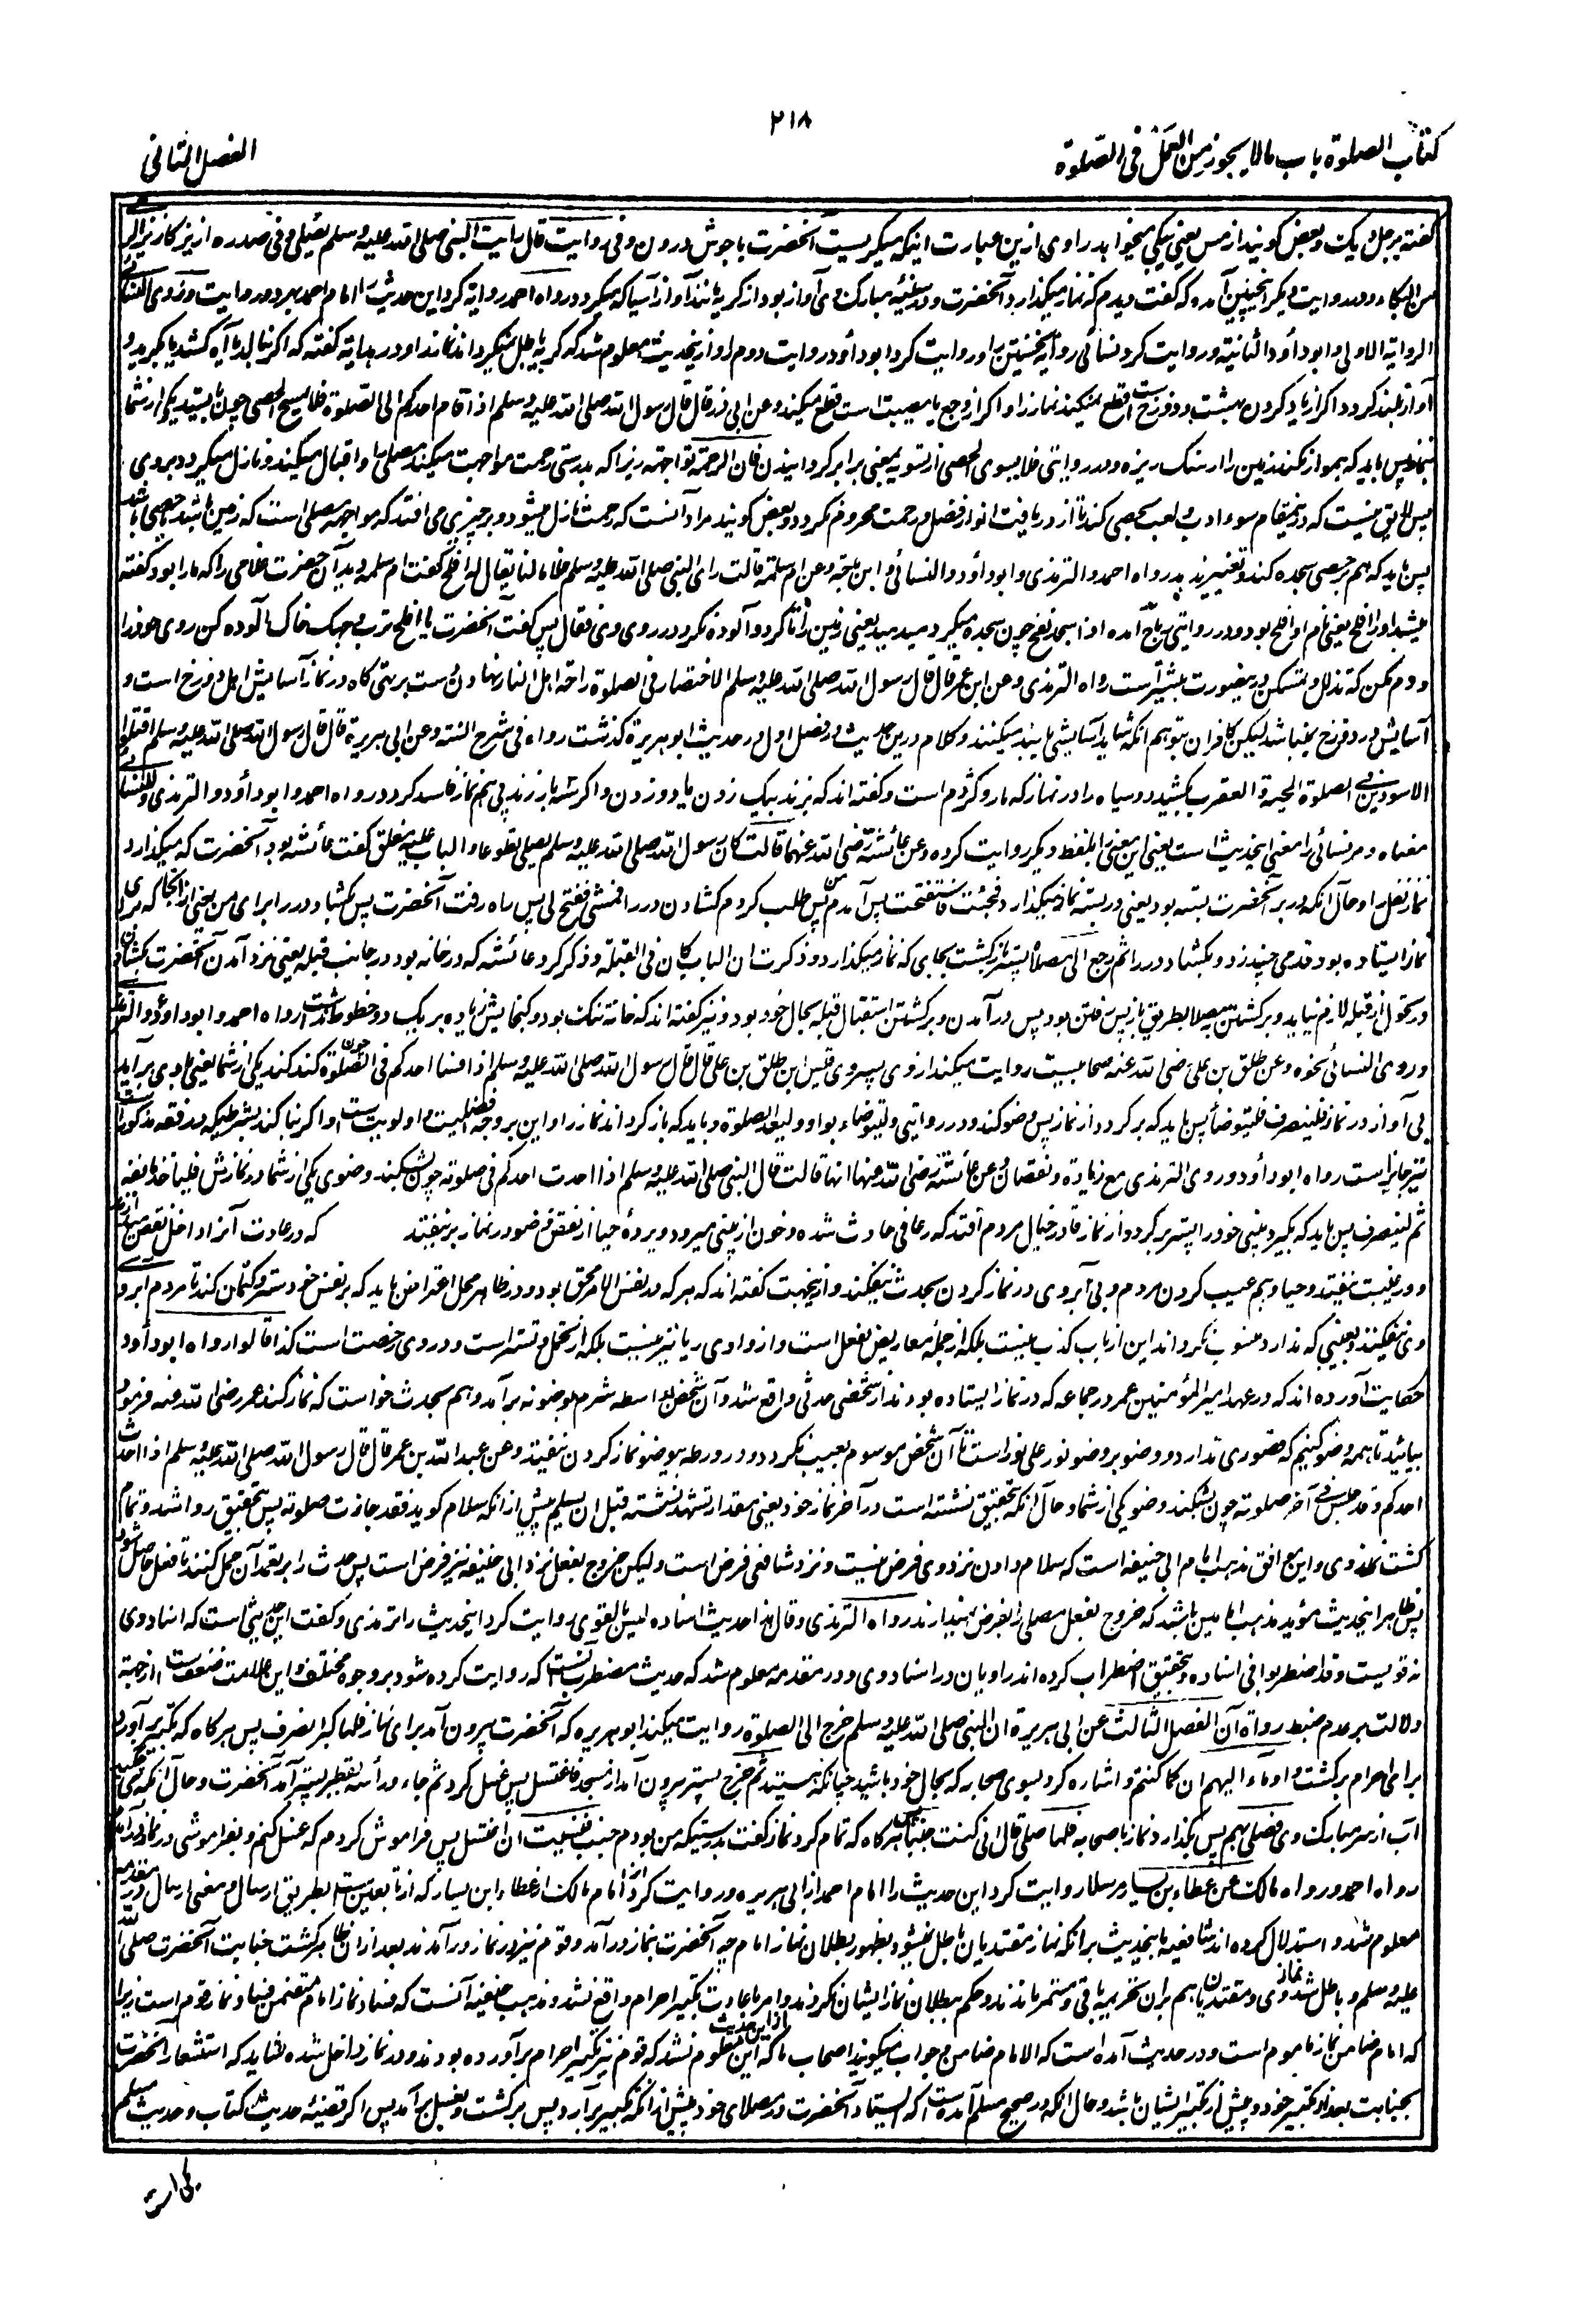 ۴۱۸
كتاب الصلوة باب ما لا يجوز من العمل فى الصلوة
الفصل الثانى
گفته مرجل دیگ و بعض گویند از مس یعنی دیگی میخواهد راوی ازین عبارت اینکه میگریست آنحضرت با جوش درون و فی روایت قال رایت النبی صلی الله علیه وسلم یصلی و فی صدره ازیز کازیز الرحی
من البکاء و در روایت دیگر اینچنین آمده که گفت دیدم که نماز میگذارد آنحضرت و در سینه مبارک وی آواز بود از گریه مانند آواز آسیا که میگردد رواه احمد روایة کرد این حدیث را امام احمد بهر دو روایت و روی النسائی
الروایة الاولی و ابو داؤد الثانیة و روایت کرد نسائی روایة نخستین را و روایت کرد ابو داؤد روایت دوم را و ازینحدیث معلوم شد که گریه باطل نمیگرداند نماز را و در هدایه گفته که اگر بنالد یا آه کشد یا بگرید و
آواز بلند گردد اگر از یاد کردن بهشت و دوزخ است قطع نمیکند نماز را و اگر از وجع یا مصیبت است قطع میکند و عن ابی ذر قال قال رسول الله صلی الله علیه وسلم اذا قام احدکم الی الصلوة فلا یمسح الحصی چون بایستد یکی از شما
بنماز پس باید که هموار نکند زمین را از سنگ ریزه و در روایتی فلا یسوی الحصی از تسویه بمعنی برابر گردانیدن فان الرحمة تواجهه زیرا که بدرستی رحمت مواجهت میکند مصلی را و اقبال میکند و نازل میگردد بروی
پس لایق نیست که درینمقام سوء ادب و لعب بحصی کند تا از دریافت انوار فضل و رحمت محروم نگردد و بعض گویند مراد آنست که رحمت نازل میشود و بر چیزی می افتد که مواجهه مصلی است که زمین باشد یا حصی باشد
پس باید که هم بر حصی سجده کند و تغییر ندهد رواه احمد و الترمذی و ابو داؤد و النسائی و ابن ماجة و عن ام سلمة قالت رای النبی صلی الله علیه وسلم غلاما لنا یقال له افلح گفت ام سلمه دید آن حضرت غلامی را که ما را بود گفته
میشد او را افلح یعنی نام او افلح بود و در روایتی رباح آمده اذا سجد نفخ چون سجده میکرد میدمید یعنی زمین را تا گرد آلوده نگردد روی وی فقال پس گفت آنحضرت یا افلح ترب وجهک خاک آلوده کن روی خود را
و دم مکن که تذلل و تمسکن درینصورت بیشتر است رواه الترمذی و عن ابن عمر قال قال رسول الله صلی الله علیه وسلم الاختصار فی الصلوة راحة اهل النار نهادن دست بر تهی گاه در نماز آسایش اهل دوزخ است و
آسایش در دوزخ نمیباشد لیکن کافران بتوهم آنکه شاید آسایشی یابند میکنند و کلام درین حدیث در فصل اول در حدیث ابو هریرة گذشت رواه فی شرح السنة و عن ابی هریرة قال قال رسول الله صلی الله علیه وسلم اقتلوا
الاسودین فی الصلوة الحیة و العقرب بکشید دو سیاه را در نماز که مار و کژدم است و گفته اند که بزند بیک زدن یا دو زدن و اگر سه بار زند پی هم نماز فاسد گردد رواه احمد و ابو داؤد و الترمذی و للنسائی
معناه و مر نسائی را معنی اینحدیث است یعنی این معنی را بلفظ دیگر روایت کرده و عن عائشة رضی الله عنها قالت کان رسول الله صلی الله علیه وسلم یصلی تطوعا و الباب علیه مغلق گفت عائشه بود آنحضرت که میگذارد
نماز نفل را و حال آنکه در بر آنحضرت بسته بود یعنی در بسته نماز میگذارد فجئت فاستفتحت پس آمدم من پس طلب کردم کشادن در را فمشی ففتح لی پس راه رفت آنحضرت پس کشاد در را برای من یعنی از آنجا که برای
نماز ایستاده بود قدمی چند زد و بکشاد در را ثم رجع الی مصلاه پستر بازگشت بجای که نماز میگذارد و ذکرت ان الباب کان فی القبلة و ذکر کرد عائشه که در خانه بود در جانب قبله یعنی نزد آمدن آنحضرت بکشادن
در تحول از قبله لازم نیاید و برگشتن بمصلا بطریق باز پس رفتن بود پس در آمدن و برگشتن استقبال قبله بحال خود بود و نیز گفته اند که خانه تنگ بود و گنجایش زیاده بر یک دو خطوه نداشت رواه احمد و ابو داؤد و الترمذی
و روی النسائی نحوه و عن طلق بن علی رضی الله عنه صحابیست روایت میکند از وی پسر وی قیس ابن طلق بن علی قال قال رسول الله صلی الله علیه وسلم اذا فسا احدکم فی الصلوة چون گند کند یکی از شما یعنی بادی برآید
بی آواز در نماز فلینصرف فلیتوضأ پس باید که برگردد از نماز پس وضو کند و در روایتی و لیتوضاء بواو و لیعد الصلوة و باید که بازگرداند نماز را و این بر وجه افضلیت و اولویت است و اگر بنا کند بشرطیکه در فقه مذکور است
نیز جائز است رواه ابو داؤد و روی الترمذی مع زیادة و نقصان و عن عائشة رضی الله عنها انها قالت قال النبی صلی الله علیه وسلم اذا احدث احدکم فی صلوته چون بشکند وضوی یکی از شما در نمازش فلیأخذ بانفه
ثم لینصرف پس باید که بگیرد بینی خود را پستر برگردد از نماز تا در خیال مردم افتد که رعافی حادث شده و خون از بینی میرود و پردهٔ حیا از نقض وضو در نماز برنیفتد که در عادت آنرا داخل نقص میدارند
و در غیبت نیفتند و حیا و بیم عیب کردن مردم و بی آبروی در نماز کردن بحدث نیفکند و ازینجهت گفته اند که هر که در نفس الامر محق بود و در ظاهر محل اعتراض باید که بر نفس خود ستر و کتمان کند تا مردم آبرو
وی نیفکنند و بعیبی که ندارد منسوب نگرداند این از باب کذب نیست بلکه از جملهٔ معاریض بفعل است و از وادی ریا نیز نیست بلکه از تجمل و تستر است و در وی رخصت است کذا قالوا رواه ابو داؤد
حکایت آورده اند که در عهد امیر المؤمنین عمر در جماعه که در نماز ایستاده بودند از شخصی حدثی واقع شد و آن شخص بواسطه شرم بوضو نه برآمد و هم بحدث خواست که نماز کند عمر رضی الله عنه فرمود
بیائید تا همه وضو کنیم که قصوری ندارد و وضو بر وضو نور علی نور است تا آن شخص موسوم بعیب نگردد و در ورطه بیوضو نماز کردن نیفتد و عن عبد الله بن عمر قال قال رسول الله صلی الله علیه وسلم اذا احدث
احدکم و قد جلس فی آخر صلوته چون بشکند وضو یکی از شما و حال آنکه بتحقیق نشسته است در آخر نماز خود یعنی مقدار تشهد نشسته قبل ان یسلم پیش از آنکه سلام گوید فقد جازت صلوته پس بتحقیق روا شد و تمام
گشت نماز وی و این موافق مذهب امام ابی حنیفه است که سلام دادن نزد وی فرض نیست و نزد شافعی فرض است و لیکن خروج بفعل نزد ابی حنیفه نیز فرض است پس حدث را بر تعمد آن حمل کنند تا فعل حاصل شود
پس ظاهر اینحدیث مؤید مذهب صاحبین باشد که خروج بفعل مصلی را فرض نپندارند رواه الترمذی و قال هذا حدیث اسناده لیس بالقوی روایت کرد اینحدیث را ترمذی و گفت این حدیثی است که اسناد وی
نه قویست و قد اضطربوا فی اسناده و بتحقیق اضطراب کرده اند راویان در اسناد وی و در مقدمه معلوم شد که حدیث مضطرب آنست که روایت کرده شود بر وجوه مختلف و این علامت ضعف است از جهة
دلالت بر عدم ضبط رواة آن الفصل الثالث عن ابی هریرة ان النبی صلی الله علیه وسلم خرج الی الصلوة روایت میکند ابو هریره که آنحضرت بیرون آمد برای نماز فلما کبر انصرف پس هرگاه که تکبیر آورد
برای احرام برگشت و اوماء الیهم ان کما کنتم و اشاره کرد بسوی صحابه که بحال خود باشید چنانکه هستید ثم خرج پستر بیرون آمد از مسجد فاغتسل پس غسل کرد ثم جاء و رأسه یقطر پستر آمد آنحضرت و حال آنکه میچکید
آب از سر مبارک وی فصلی بهم پس بگذارد نماز با صحابه فلما صلی قال انی کنت جنبا هرگاه که تمام کرد نماز گفت بدرستیکه من بودم جنب فنسیت ان اغتسل پس فراموش کردم که غسل کنم و بفراموشی در نماز درآمدم
رواه احمد و رواه مالک عن عطاء بن یسار مرسلا روایت کرد این حدیث را امام احمد از ابی هریره و روایت کرد آنرا امام مالک از عطاء ابن یسار که از تابعین است بطریق ارسال و معنی ارسال در مقدمه
معلوم شد و استدلال کرده اند شافعیه باینحدیث بر آنکه نماز مقتدیان باطل نمیشود بظهور بطلان نماز امام چه آنحضرت بنماز درآمد و قوم نیز در نماز درآمدند بعد از آن ظاهر گشت جنابت آنحضرت صلی الله
علیه وسلم و باطل شد نماز وی و مقتدیان هم بران تحریمه باقی و مستمر ماندند و حکم ببطلان نماز ایشان نکردند و امر باعادت تکبیر احرام واقع نشد و مذهب حنفیه آنست که فساد نماز امام متضمن فساد نماز قوم است زیرا
که امام ضامن نماز ماموم است و در حدیث آمده است که الامام ضامن و جواب میگویند اصحاب ما که ازین حدیث این معلوم نشد که قوم نیز تکبیر احرام برآورده بودند و در نماز داخل شده شاید که استشعار آنحضرت
بجنابت بعد از تکبیر خود و پیش از تکبیر ایشان باشد و حال آنکه در صحیح مسلم آمده است که ایستاد آنحضرت در مصلای خود پیش از آنکه تکبیر برآرد پس برگشت و بغسل برآمد پس اگر قضیهٔ حدیث کتاب و حدیث مسلم